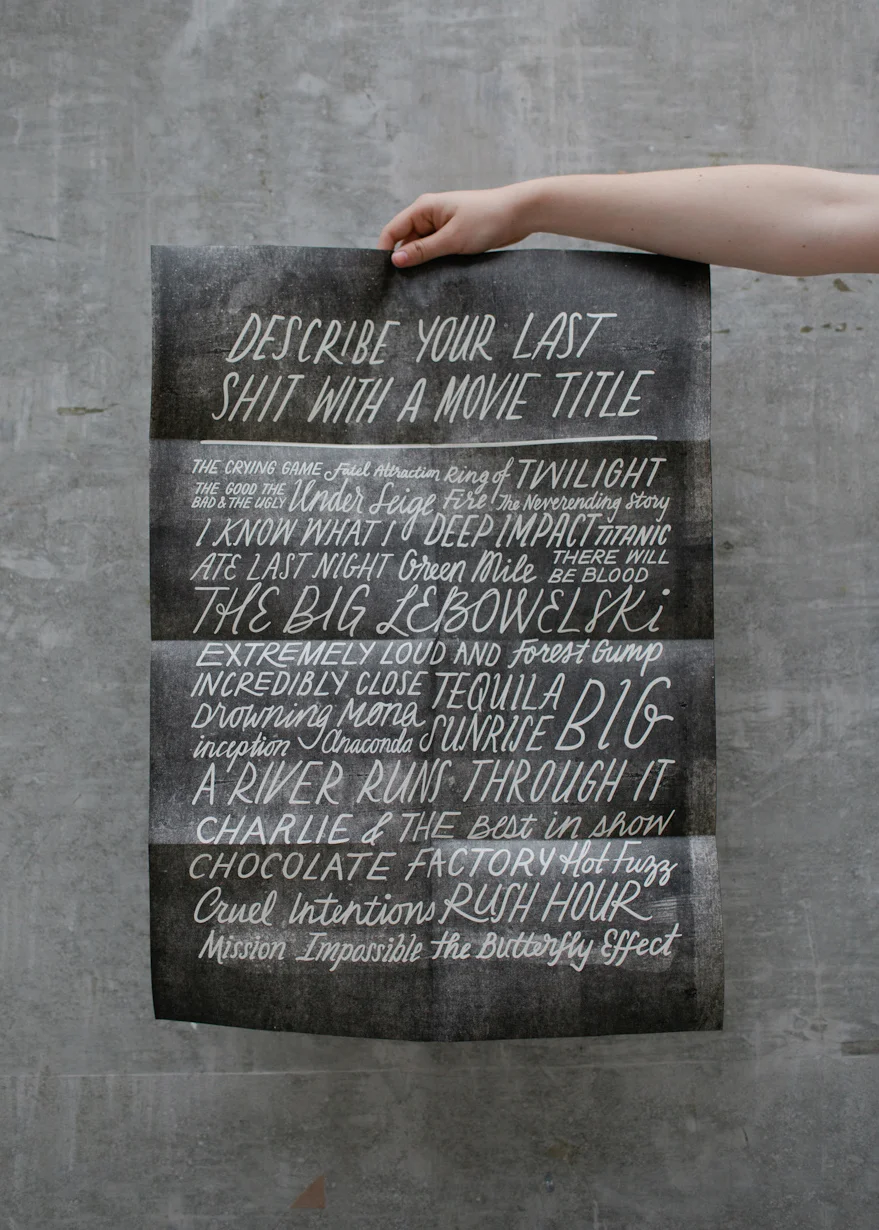 DESCRIBE YOUR LAST
SHIT WITH A MOVIE TITLE
THE CRYING GAME Fatel Attraction Ring of TWILIGHT
THE GOOD THE
BAD & THE UGLY Under Seige Fire The Neverending Story
I KNOW WHAT I DEEP IMPACT TITANIC
ATE LAST NIGHT Green Mile THERE WILL
BE BLOOD
THE BIG LEBOWELSKi
EXTREMELY LOUD AND Forest Gump
INCREDIBLY CLOSE TEQUILA BIG
Drowning Mona SUNRISE
inception Anaconda
A RIVER RUNS THROUGH IT
CHARLIE & THE Best in show
CHOCOLATE FACTORY Hot Fuzz
Cruel Intentions RUSH HOUR
Mission Impossible the Butterfly Effect